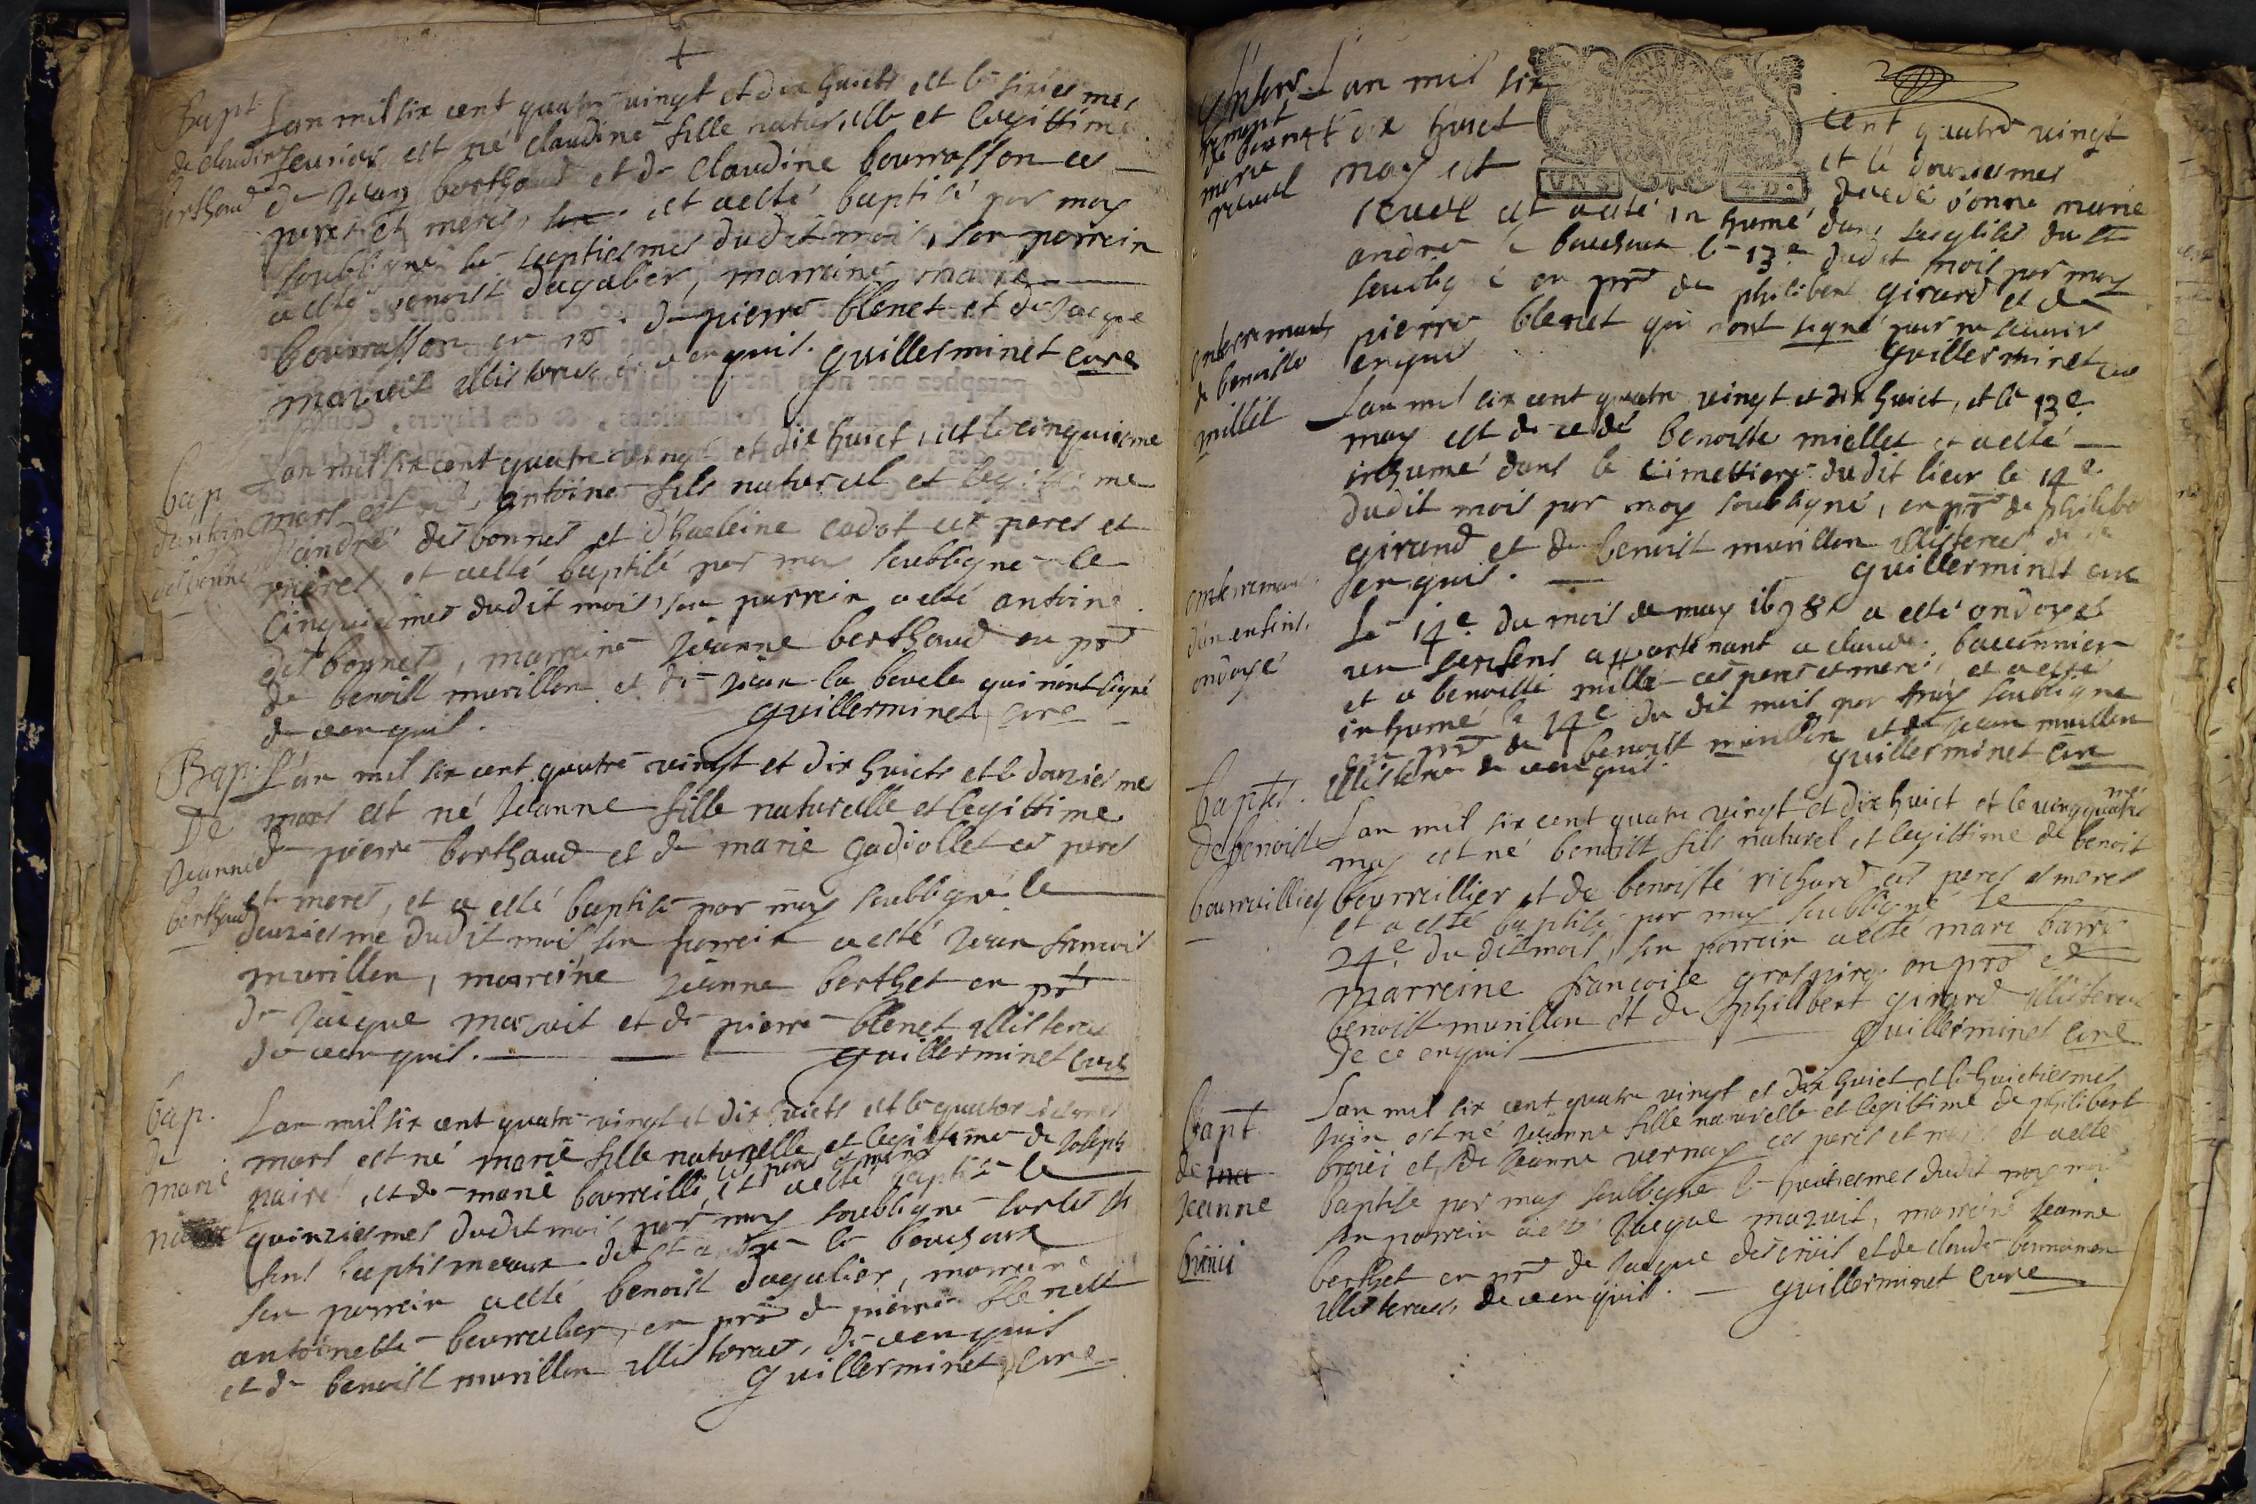 Bapt.
de claudine
berthaud
Lan mil six cent quatre vingt et dix huict et le sixiesmes
feurier est né claudine fille naturelle et legittime
de Jean berthaud et de claudine bourrasson ces
peres et meres, et a esté baptisé par moy
soubsigné le septiesmes dudit mois, son parrein
a esté benoist dagalier, marreine marie
bourrasson en pnt de pierre blenet et de Jacque
mazuit illisteres de ce enquis. Guilleminet cure
bap.
d'antoine
des bonnes
Lan mil six cent quatre vingt et dix huict, et le cinquiesme
mars est né, antoine fils naturel et legittime
d'andré des bonnes et d'haeleine cadot ces peres et
meres, et a esté baptisé par moy soubsigné le
cinquiesmes dudit mois, son parrein a esté antoine
des bonnes, marreine Jeanne berthaud en pnt
de benoist murillon et de Jean la boucle qui n'ont signé
de ce enquis. Guillerminet cure
Bap.
De
Jeanne
berthaud
L'an mil six cent quatre vingt et dix huicts et le douziesmes
mars est né Jeanne fille naturelle et legittime
de pierre berthaud et de marie gadiollet ces peres
et meres, et a esté baptisé par moy soubsigné le
douziesme dudit mois, son parrein a esté Jean francois
murillon, marreine Jeanne berthet en pnt
de Jacque mazuit et de pierre blenet illisteres
de ce enquis. Guillerminet cure
bap.
de
marie
Lan mil six cent quatre vingt et dix huicts et le quatorziesmes
mars est né marie fille naturelle et legittime de Joseph
paire, et de marie bourreillie, ces peres et meres et a esté baptisé le
quinziesmes dudit mois par moy soubsigné sur les
fons baptismeaux de St andré le bouchoux
son parrein a esté benoist dagalier, marreine
antoinette bourrelier, en pnt de pierre blenett
et de benoist murillon illisteres, de ce enquis
Guillerminet cure
marie
reuel
L'an mil six cent quatre vingt
et dix huict et le douziesmes
may est decedé d'onne marie
reuel et a esté inhumé dans leglise du St
andre le bouchoux le 13e dudit mois par moy
soubsigné en pnt de philibert girard et de
pierre blenet qui n'ont signé pour ne scauoir
enquis Guillerminet cure
enterrement
de benoiste
millet
Lan mil six cent quatre vingt et dix huict, et le 13e
may est decedé benoiste miellet et a esté
inhumé dans le cimettiere dudit lieu le 14e
dudit mois par moy soubsigné, en pnt de philibert
girard et de benoist murillon illisteres de ce
enquis. Guillerminet cure
enterrement
d'un enfent
ondoyé
Le 14e du mois de may 1698 a esté ondoyés
un enfens appartenant a claude bauonnier
et a benoiste mille ces peres et meres, et a esté
inhumé le 14e du dit mois par moy soubsigné
en pnt de benoist murillon et de Jean murillon
illisteres de ce enquis. Guillerminet cure
baptes.
de benoist
bourreillier
Lan mil six cent quatre vingt et dix huict et le vingquatriesme
may est né benoist fils naturel et legittime de benoit
bourreillier et de benoiste richard ces peres et meres
et a esté baptisé par moy soubsigné le
24e du dit mois, son parrein a esté marc barry
marreine francoise grospirez en pnt de
benoist murillon et de philibert girard illisteres
de ce enquis Guillerminet cure
bapt
de
Jeanne
broüi
Lan mil six cent quatre vingt et dix huict et le huictiesmes
Juin est né Jeanne fille naturelle et legittime de philibert
broüi et de Jeanne vernay ces peres et meres et a esté
baptisé par moy soubsigné le huictiesmes dudit moy mois
son parrein a esté Jacque mazuit, marreine Jeanne
berthet en pnt de Jacque descroix et de claude
illisteres, de ce enquis. Guillerminet cure